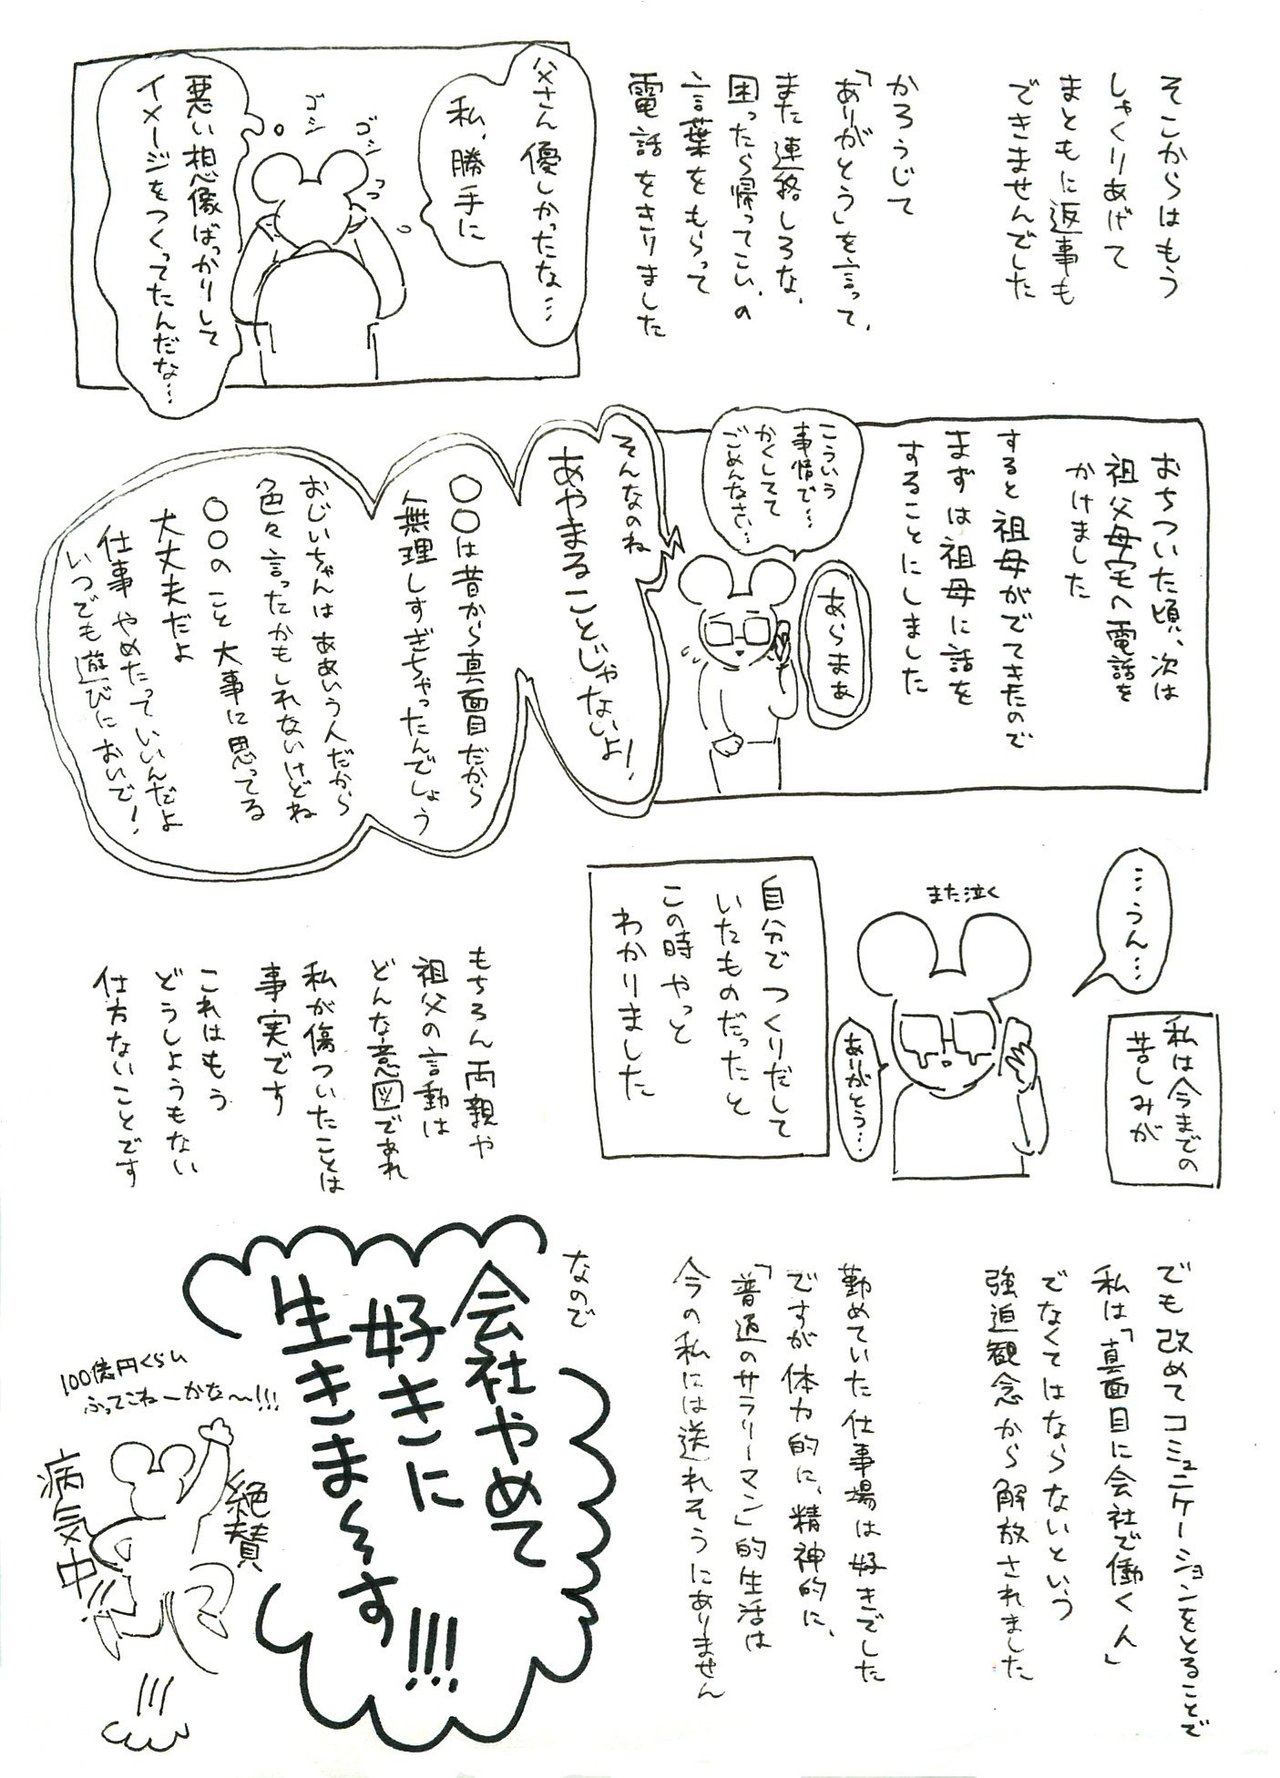 そこからはもう
しゃくりあげて
まともに返事も
できませんでした
かろうじて
「ありがとう」を言って、
また連絡しろな、
困ったら帰ってこい、の
言葉をもらって
電話をきりました
父さん優しかったな…
私、勝手に
ゴシ
ゴシ
悪い想像ばっかりして
イメージをつくってたんだな…
おちついた頃、次は
祖父母宅へ電話を
かけました
すると祖母がでてきたので
まずは祖母に話を
することにしました
こういう
事情で…
かくしてて
ごめんなさい…
あらまぁ
そんなのね
あやまることじゃないよ!
〇〇は昔から真面目だから
無理しすぎちゃったんでしょう
おじいちゃんはああいう人だから
色々言ったかもしれないけどね
〇〇のこと大事に思ってる
大丈夫だよ
仕事やめたっていいんだよ
いつでも遊びにおいで!
…うん…
また泣く
ありがとう…
私は今までの
苦しみが
自分でつくりだして
いたものだったと
この時やっと
わかりました
もちろん両親や
祖父の言動は
どんな意図であれ
私が傷ついたことは
事実です
これはもう
どうしようもない
仕方ないことです
でも改めてコミュニケーションをとることで
私は「真面目に会社で働くん」
でなくてはならないという
強迫観念から解放されました
勤めていた仕事場は好きでした
ですが体力的に、精神的に、
「普通のサラリーマン」的生活は
今の私には送れそうにありません
なので
会社やめて
好きに
生きま〜す!!!
100億円くらい
ふってこねーかな〜!!!
絶賛
病気中!!